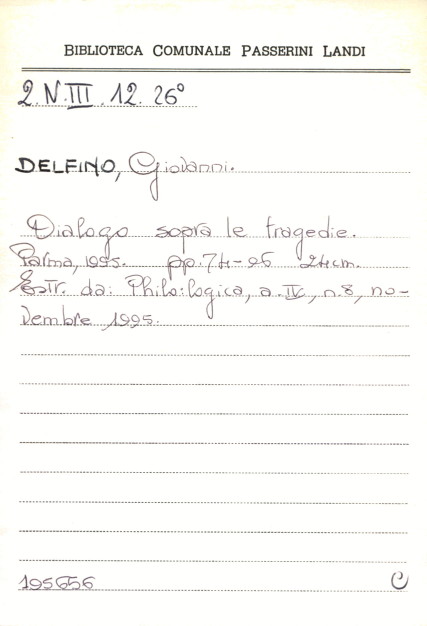 BIBLIOTECA COMUNALE PASSERINI LANDI
2.N.III.12.26°
DELFINO, Giovanni.
Dialogo sopra le tragedie.
Parma, 1995. pp. 74-96 24cm.
Estr. da: Philo:logica, a.IV, n.8, no-
vembre 1995.
195656 C